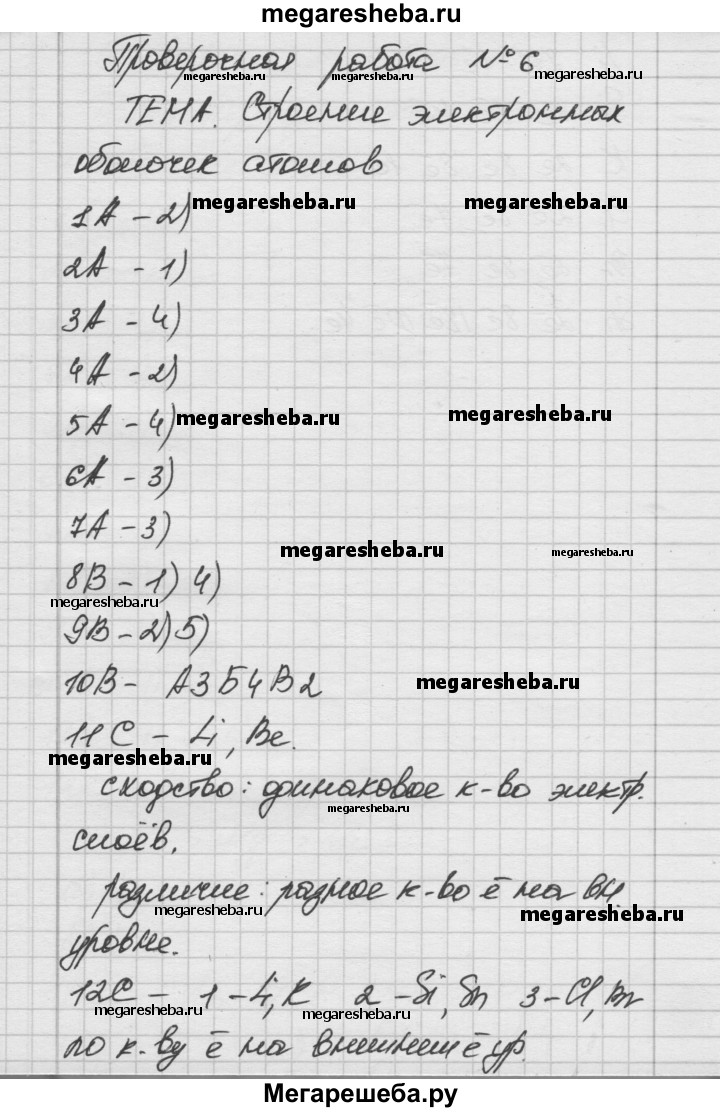 megaresheba.ru
Проверочная работа № 6
megaresheba.ru megaresheba.ru megaresheba.ru
ТЕМА. Строение электронных
оболочек атомов
1А - 2) megaresheba.ru megaresheba.ru
2А - 1)
3А - 4)
4А - 2)
5А - 4) megaresheba.ru megaresheba.ru
6А - 3)
7А - 3)
megaresheba.ru megaresheba.ru
8В - 1) 4)
megaresheba.ru
9В - 2) 5)
10В - А3Б4В2 megaresheba.ru
11С - Li, Be.
megaresheba.ru
сходство: одинаковое к-во электр.
megaresheba.ru
слоёв,
различие: разное к-во ē на вн.
megaresheba.ru megaresheba.ru
уровне.
12С - 1 - Li, K 2 - Si, Sn 3 - Cl, Br
megaresheba.ru megaresheba.ru megaresheba.ru
по к-ву ē на внешнем ē ур.
Мегарешеба.ру